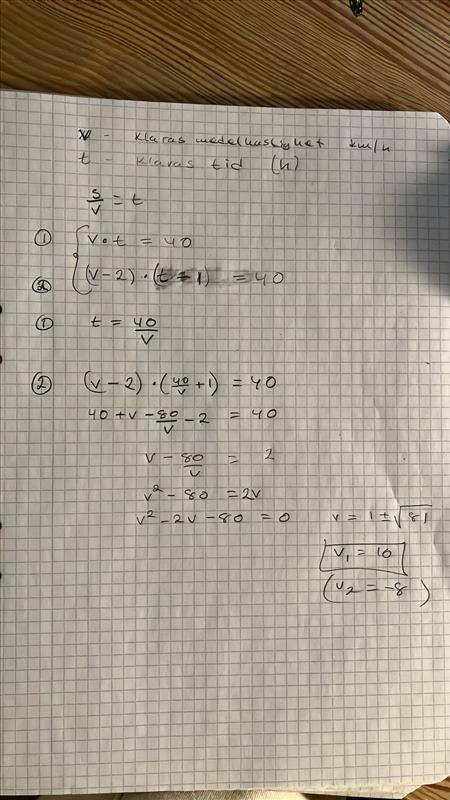 v - Klaras medelhastighet km/h
t - Klaras tid (h)
s/v = t
① v • t = 40
② (v-2) • (t+1) = 40
① t = 40/v
② (v-2) • (40/v + 1) = 40
40 + v - 80/v - 2 = 40
v - 80/v = 2
v² - 80 = 2v
v² - 2v - 80 = 0 v = 1 ± √81
v₁ = 10
(v₂ = -8)